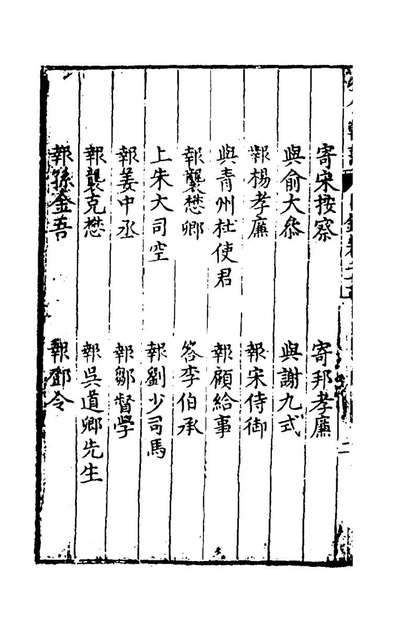 寄宋按察　寄邦孝廉
與俞大叅　與謝九式
報楊孝廉　報宋侍御
與青州杜使君　報顧給事
報龔懋卿　答李伯承
上朱大司空　報劉少司馬
報姜中丞　報鄒督學
報龔克懋　報吳道卿先生
報孫金吾　報鄧令
二